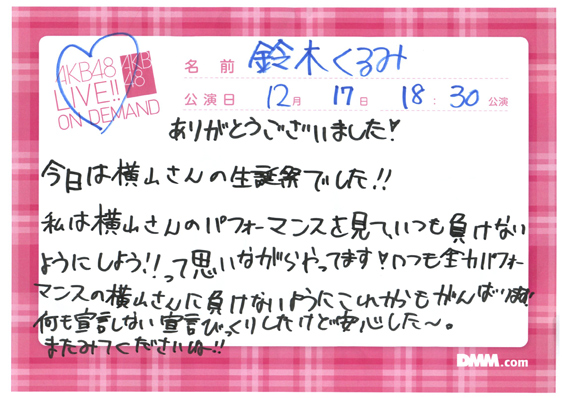 AKB48
LIVE!!
ON DEMAND
AKB
48
名前 鈴木くるみ
公演日 12月 17日 18:30公演
ありがとうございました♥
今日は横山さんの生誕祭でした!!
私は横山さんのパフォーマンスを見ていつも負けない
ようにしよう!!って思いながらやってます♥いつも全力パフォー
マンスの横山さんに負けないようにこれからもがんばります!
何も宣言しない宣言びっくりしたけど安心した〜。
またみてくださいねー!!
DMM.com